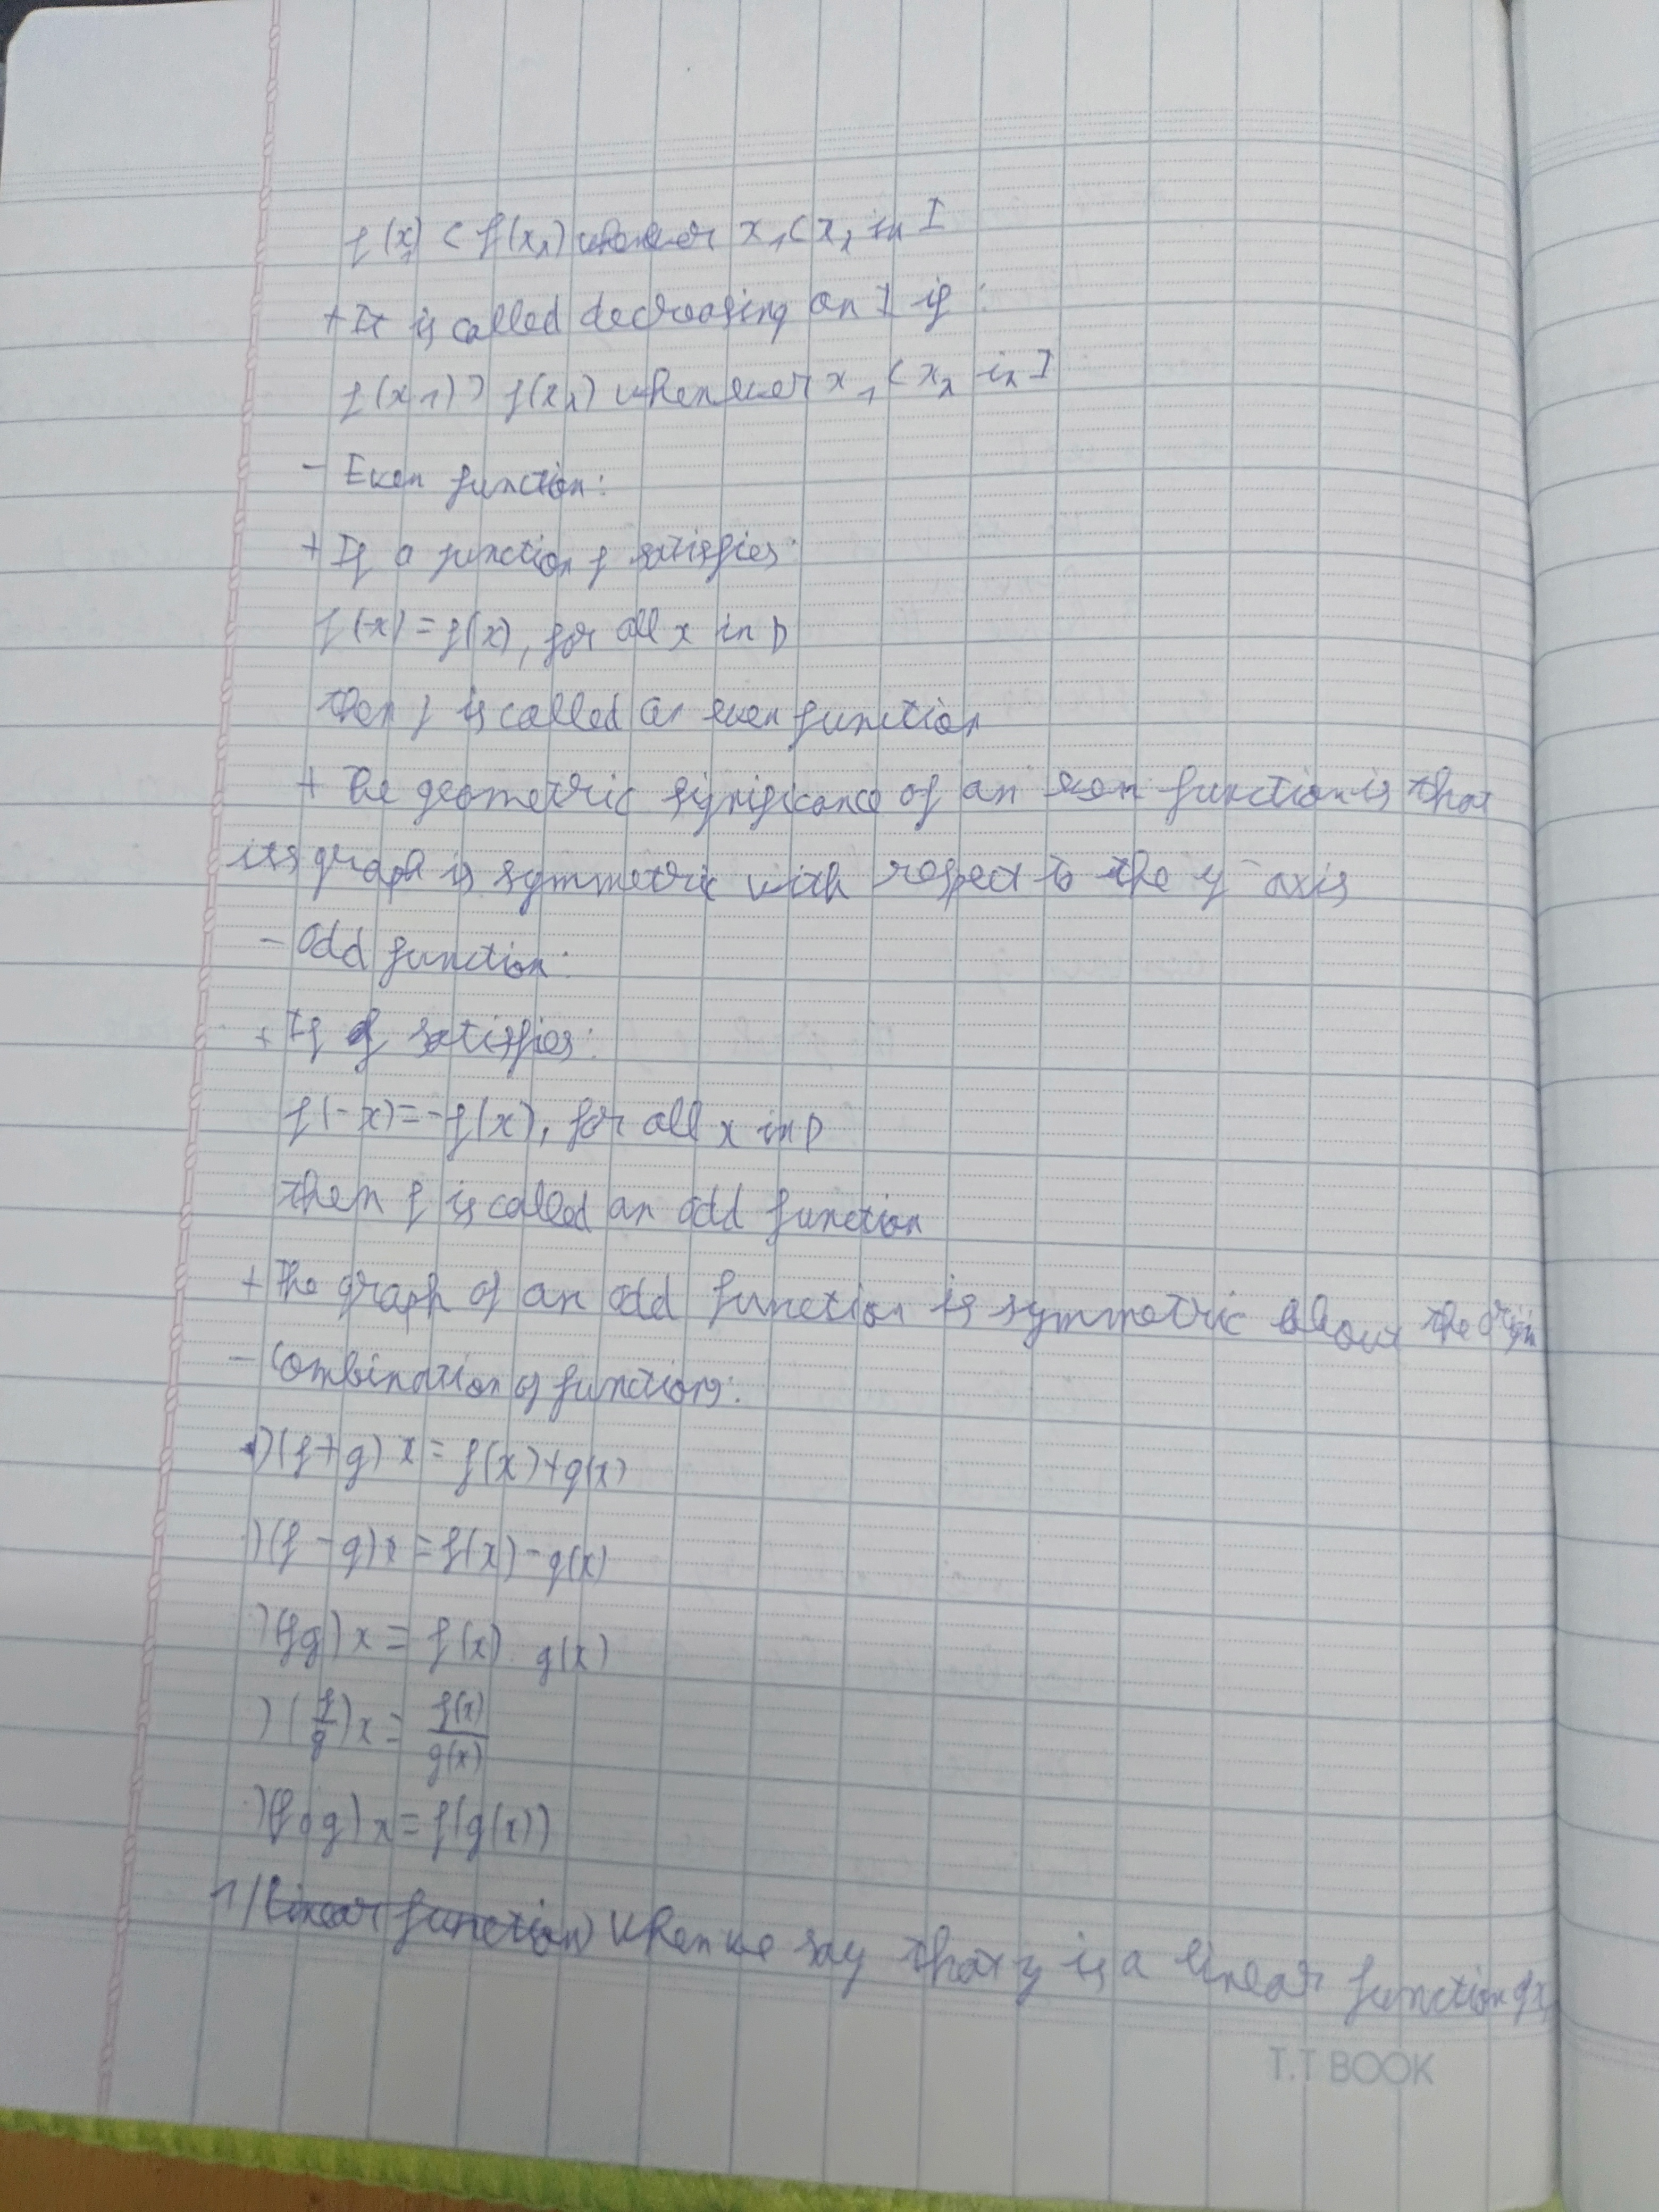 f(x₁) < f(x₂) whenever x₁ < x₂ in I
+ It is called decreasing on I if :
f(x1) > f(x₂) whenever x₁ < x₂ in I
- Even function:
+ If a function f satisfies:
f(-x) = f(x), for all x in D
then f is called an even function
+ The geometric significance of an even function is that
its graph is symmetric with respect to the y-axis
- Odd function:
+ If f satisfies:
f(-x) = -f(x), for all x in D
then f is called an odd function
+ The graph of an odd function is symmetric about the origin
- Combination of functions:
·)(f+g) x = f(x)+g(x)
·)(f-g)x = f(x)-g(x)
·)(fg)x = f(x). g(x)
·)(f/g)x = f(x)/g(x)
·)(fog)x = f(g(x))
1/ Linear function) When we say that y is a linear function of x,
T.T BOOK